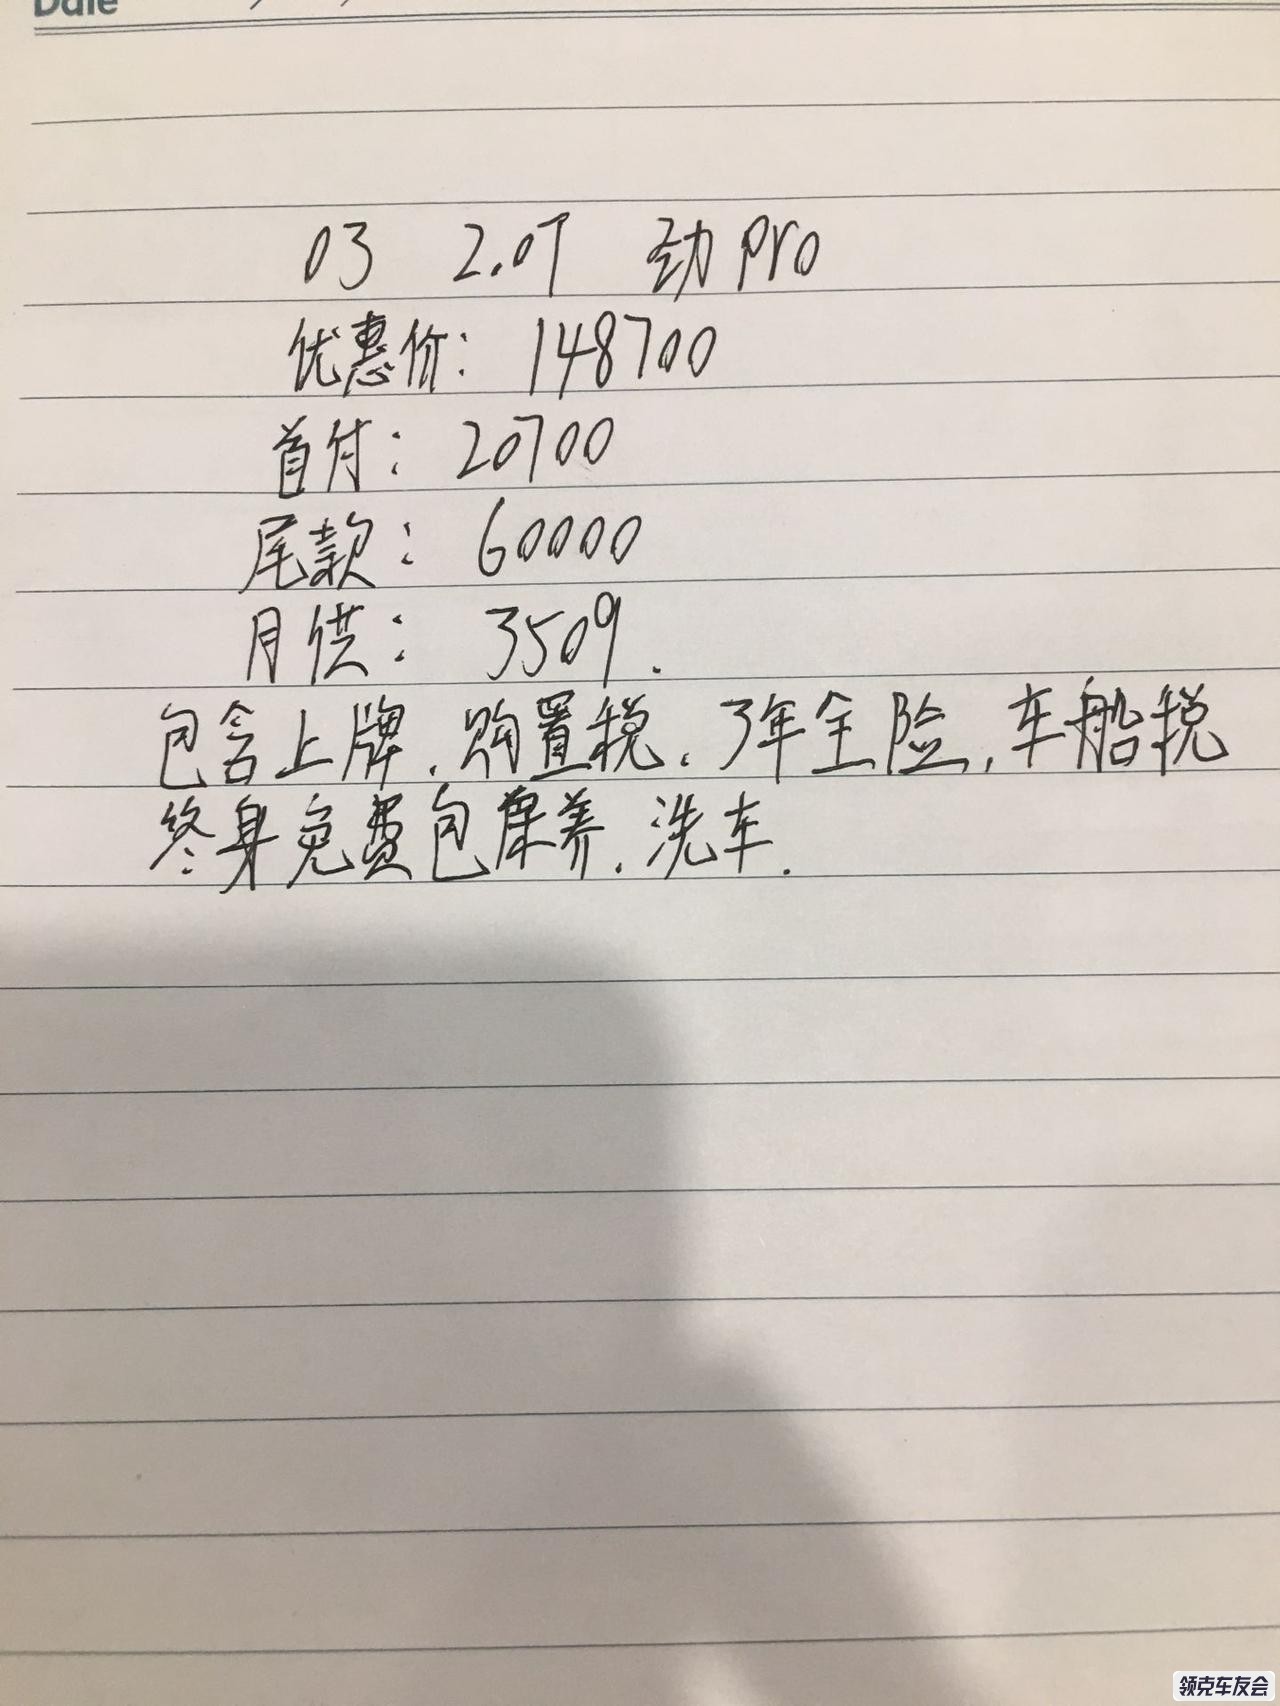 Date
03 2.0T 劲 pro
优惠价: 148700
首付: 20700
尾款: 60000
月供: 3509.
包含上牌.购置税.3年全险,车船税
终身免费包保养.洗车.
领克车友会